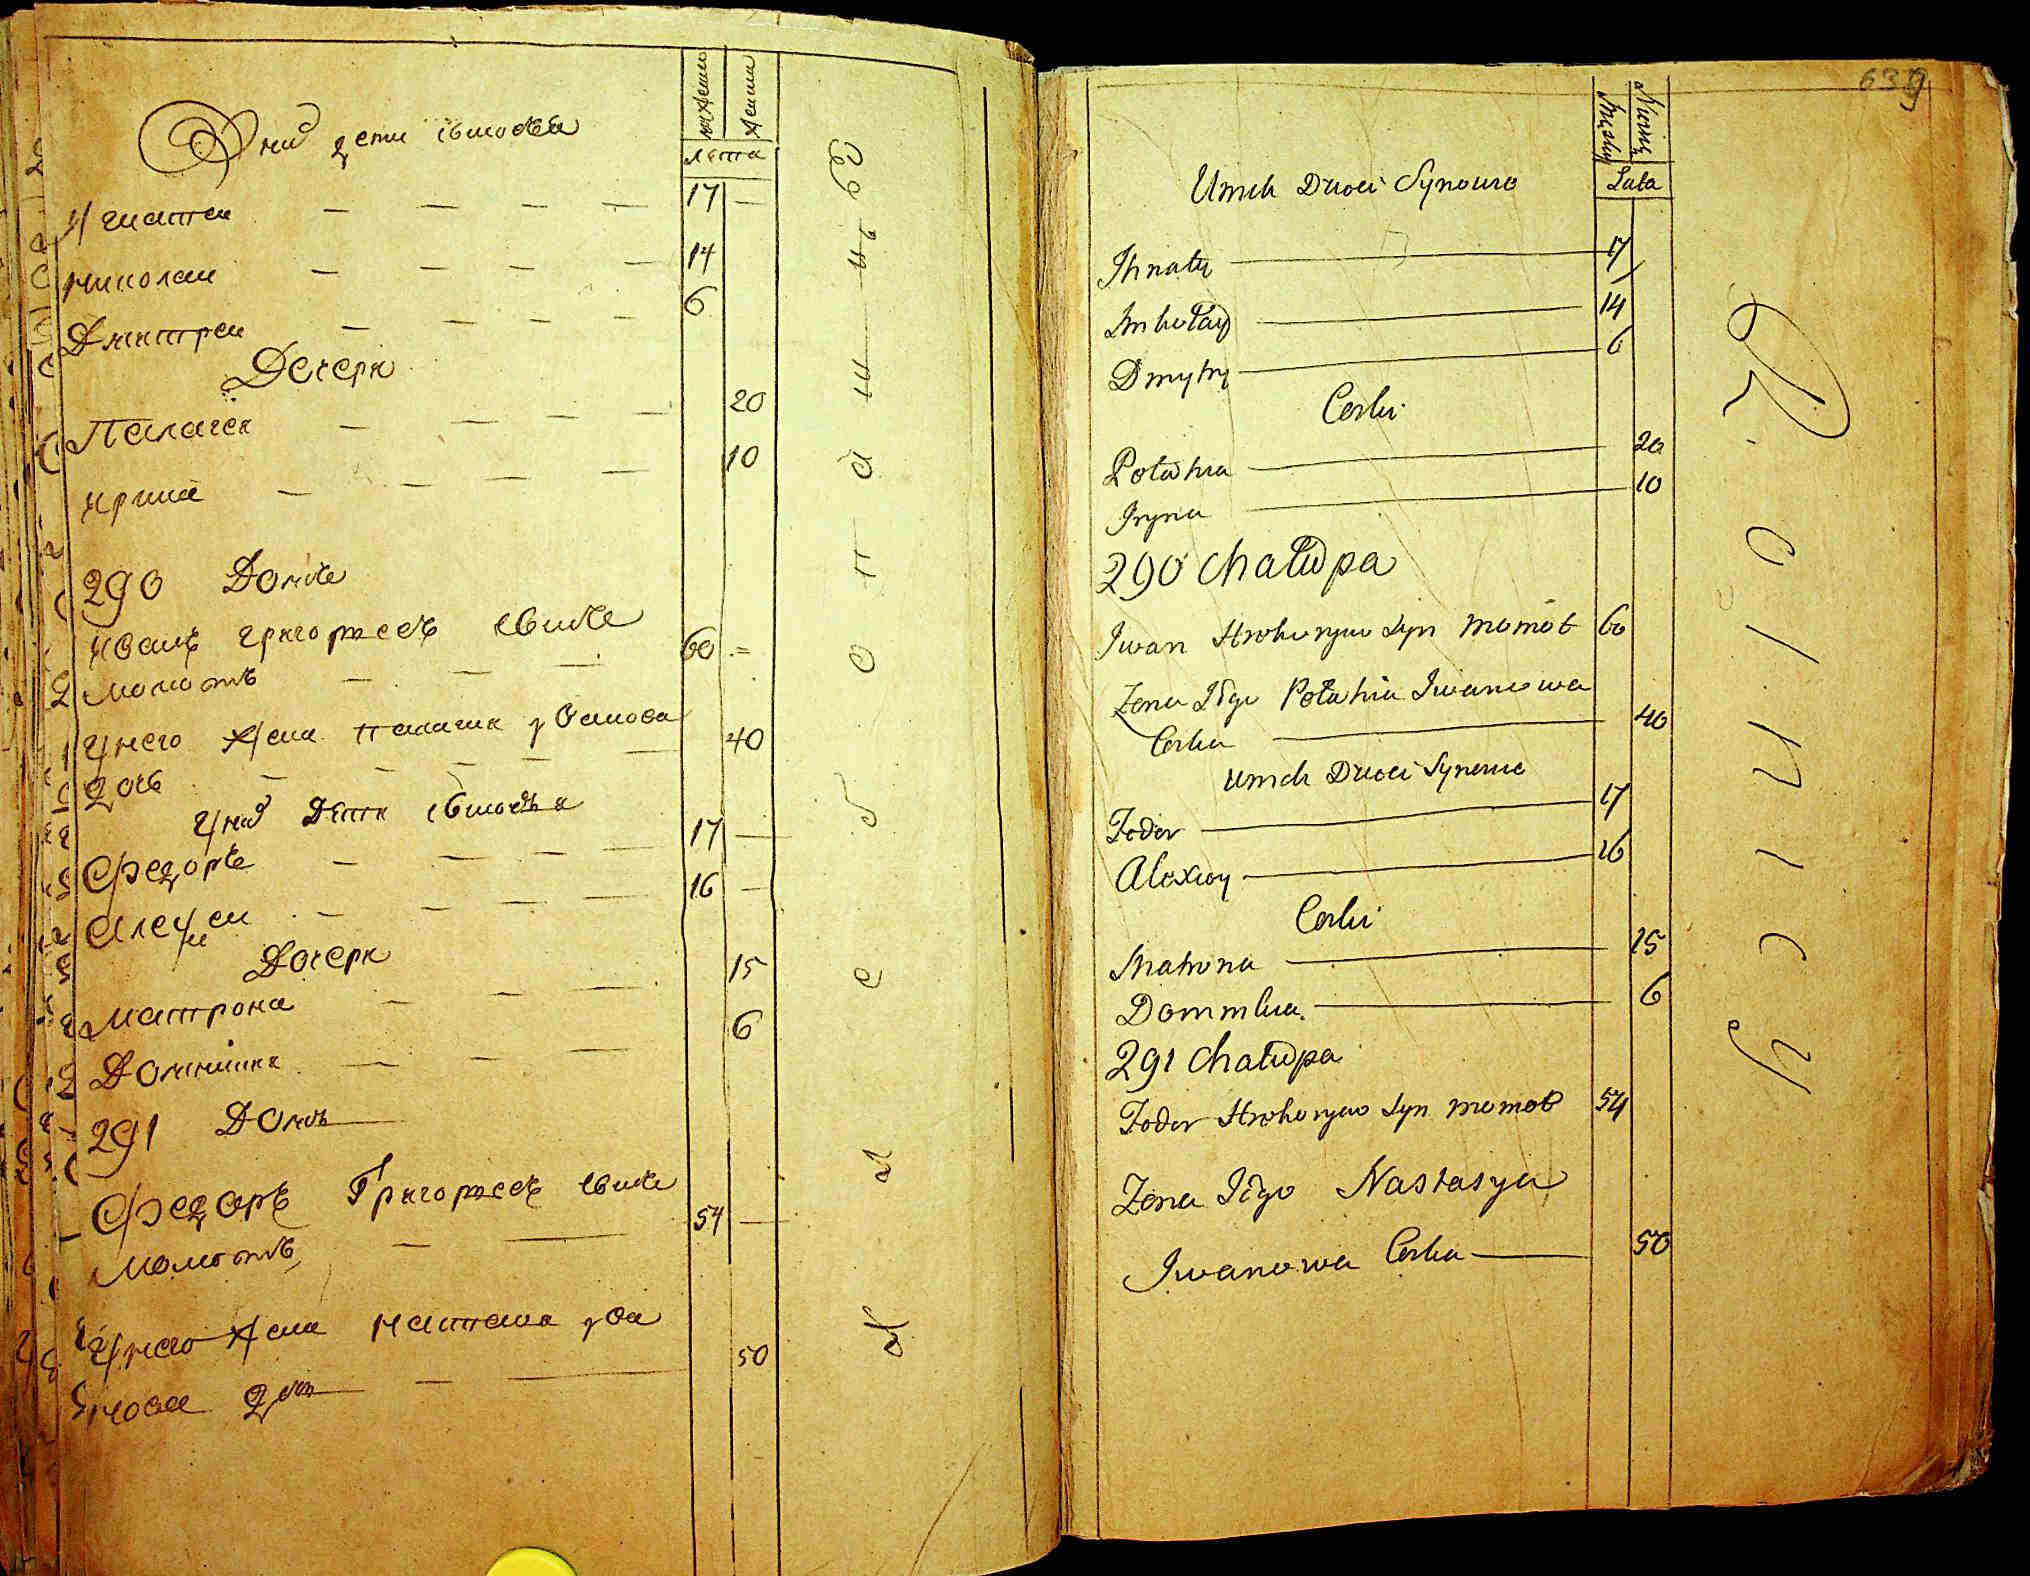 Унихъ дети сыновья
мужеска
женска
лета
Игнатеи 17
николаи 14
Дмитреи 6
Дочери
Палагея 20
ирина 10
290 Домъ
иванъ григорьевъ сынъ 60
момотъ
Унего жена палагея ивановa
дочь 40
Унихъ Дети сыновья
Федоръ 17
Алеѯеи 16
Дочери
Матрона 15
Домникия 6
291 Домъ
Федоръ Григорьевъ сынъ
момотъ 54
Унего жена настасия ива
нова дочь 50
639
Męskiy
Lata
Umch Dwoci Synowe
Ihnaty 17
Mikołay 14
Dmytry 6
Corki
Połahia 20
Iryna 10
290 Chałupa
Iwan Hrehoryiow Syn Momot 60
Zona Iego Połahia Iwanowa
Corka 40
Umch Dwoci Synowe
Fedor 17
Alexiey 16
Corki
Matrona 15
Domnikia 6
291 Chałupa
Fedor Hrehoryiow Syn Momot 54
Zona Iego Nastasya
Iwanowa Corka 50
Rolnicy